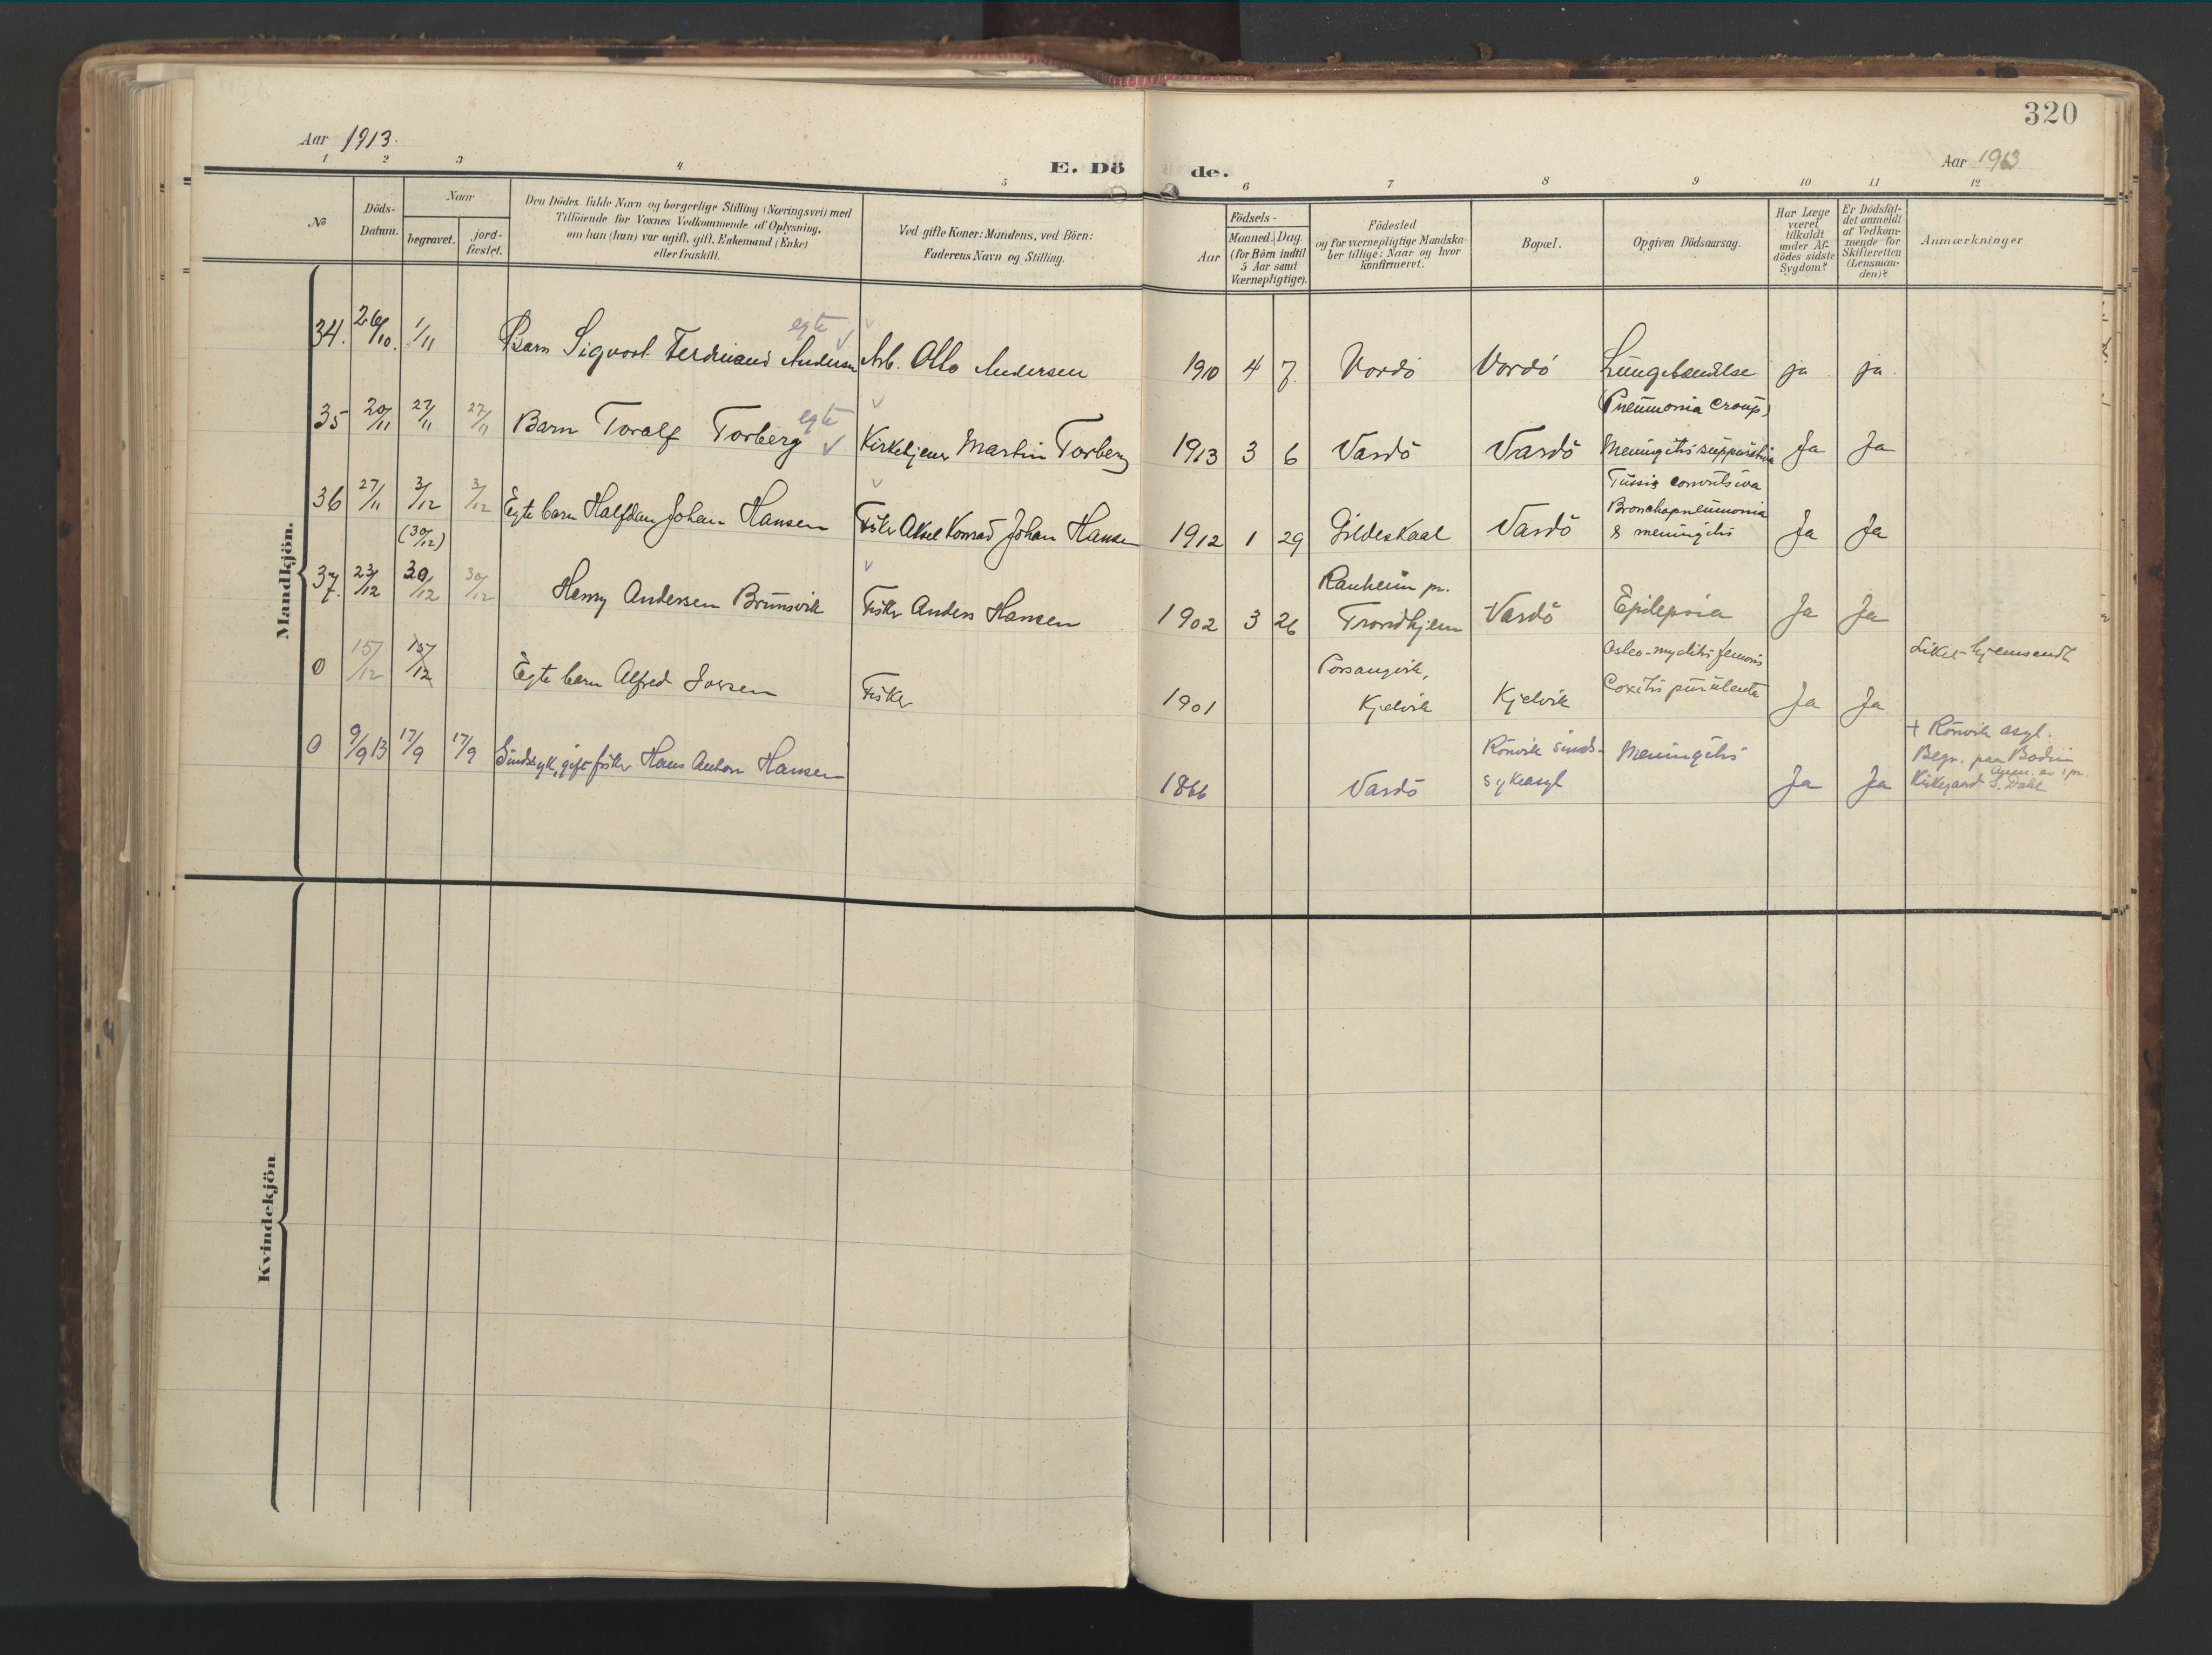 320
Aar 1913.
Aar 1913
E. Dö de.
1 2 3 4 5 6 7 8 9 10 11 12
No
Döds-Datum.
Naar
begravet.
jord-fæstet.
Den Dödes fulde Navn og borgerlige Stilling (Næringsvei) med
Tilföiende for Voxnes Vedkommende af Oplysning,
om han (hun) var ugift, gift, Enkemand (Enke)
eller fraskilt.
Ved gifte Koner: Mandens, ved Börn:
Faderens Navn og Stilling.
Födsels-
Aar
Maaned. Dag
(for Börn indtil
5 Aar samt
Værnepligtige).
Födested
og for værnepligtige Mandska-
ber tillige: Naar og hvor
konfirmeret.
Bopæl.
Opgiven Dödsaarsag.
Har Læge
været
tilkaldt
under Af-
dödes sidste
Sygdom?
Er Dödsfal-
det anmeldt
af Vedkom-
mende for
Skifteretten
(Lensman-
den)?
Anmærkninger
Mandkjön.
34. 26/10. 1/11 Barn Sigvart Ferdinand Andersen egte Arb. Otto Andersen 1910 4 7. Vardö Vardö Lungebendelse ja ja
(Pneumonia croup)
35 20/11 27/11 27/11 Barn Toralf Torberg egte Kirketjener Martin Torberg 1913 3 6 Vardö Vardö Meningitis suppurativa Ja Ja
Tussis convulsiva
36 27/11 3/12 3/12 Egte barn Halfdan Johan Hansen Fisker Aksel Konrad Johan Hansen 1912 1 29 Gildeskaal Vardö Bronchopneumonia
& meningitis Ja Ja
(30/12)
37. 23/12 30/12 30/12 Henry Andersen Brunsvik Fisker Anders Hansen 1902 3 26 Ranheim pr.
Trondhjem Vardö Epilepsia Ja Ja
0 15/12 15/12 Egte barn Alfred Fisker 1901 Porsangvik,
Kjelvik Kjelvik Osteo-myelitis femoris
Coxitis purulenta Ja Ja Liket hjemsendt
0 9/9 13 17/9 17/9 Sindssyk, gift fisker Hans Anton Hansen 1866 Vardö Rönvik sinds-
sykeasyl Meningitis Ja Ja + Rönvik asyl.
Begr. paa Bodin
Kirkegaard S. Dahl
Kvindekjön